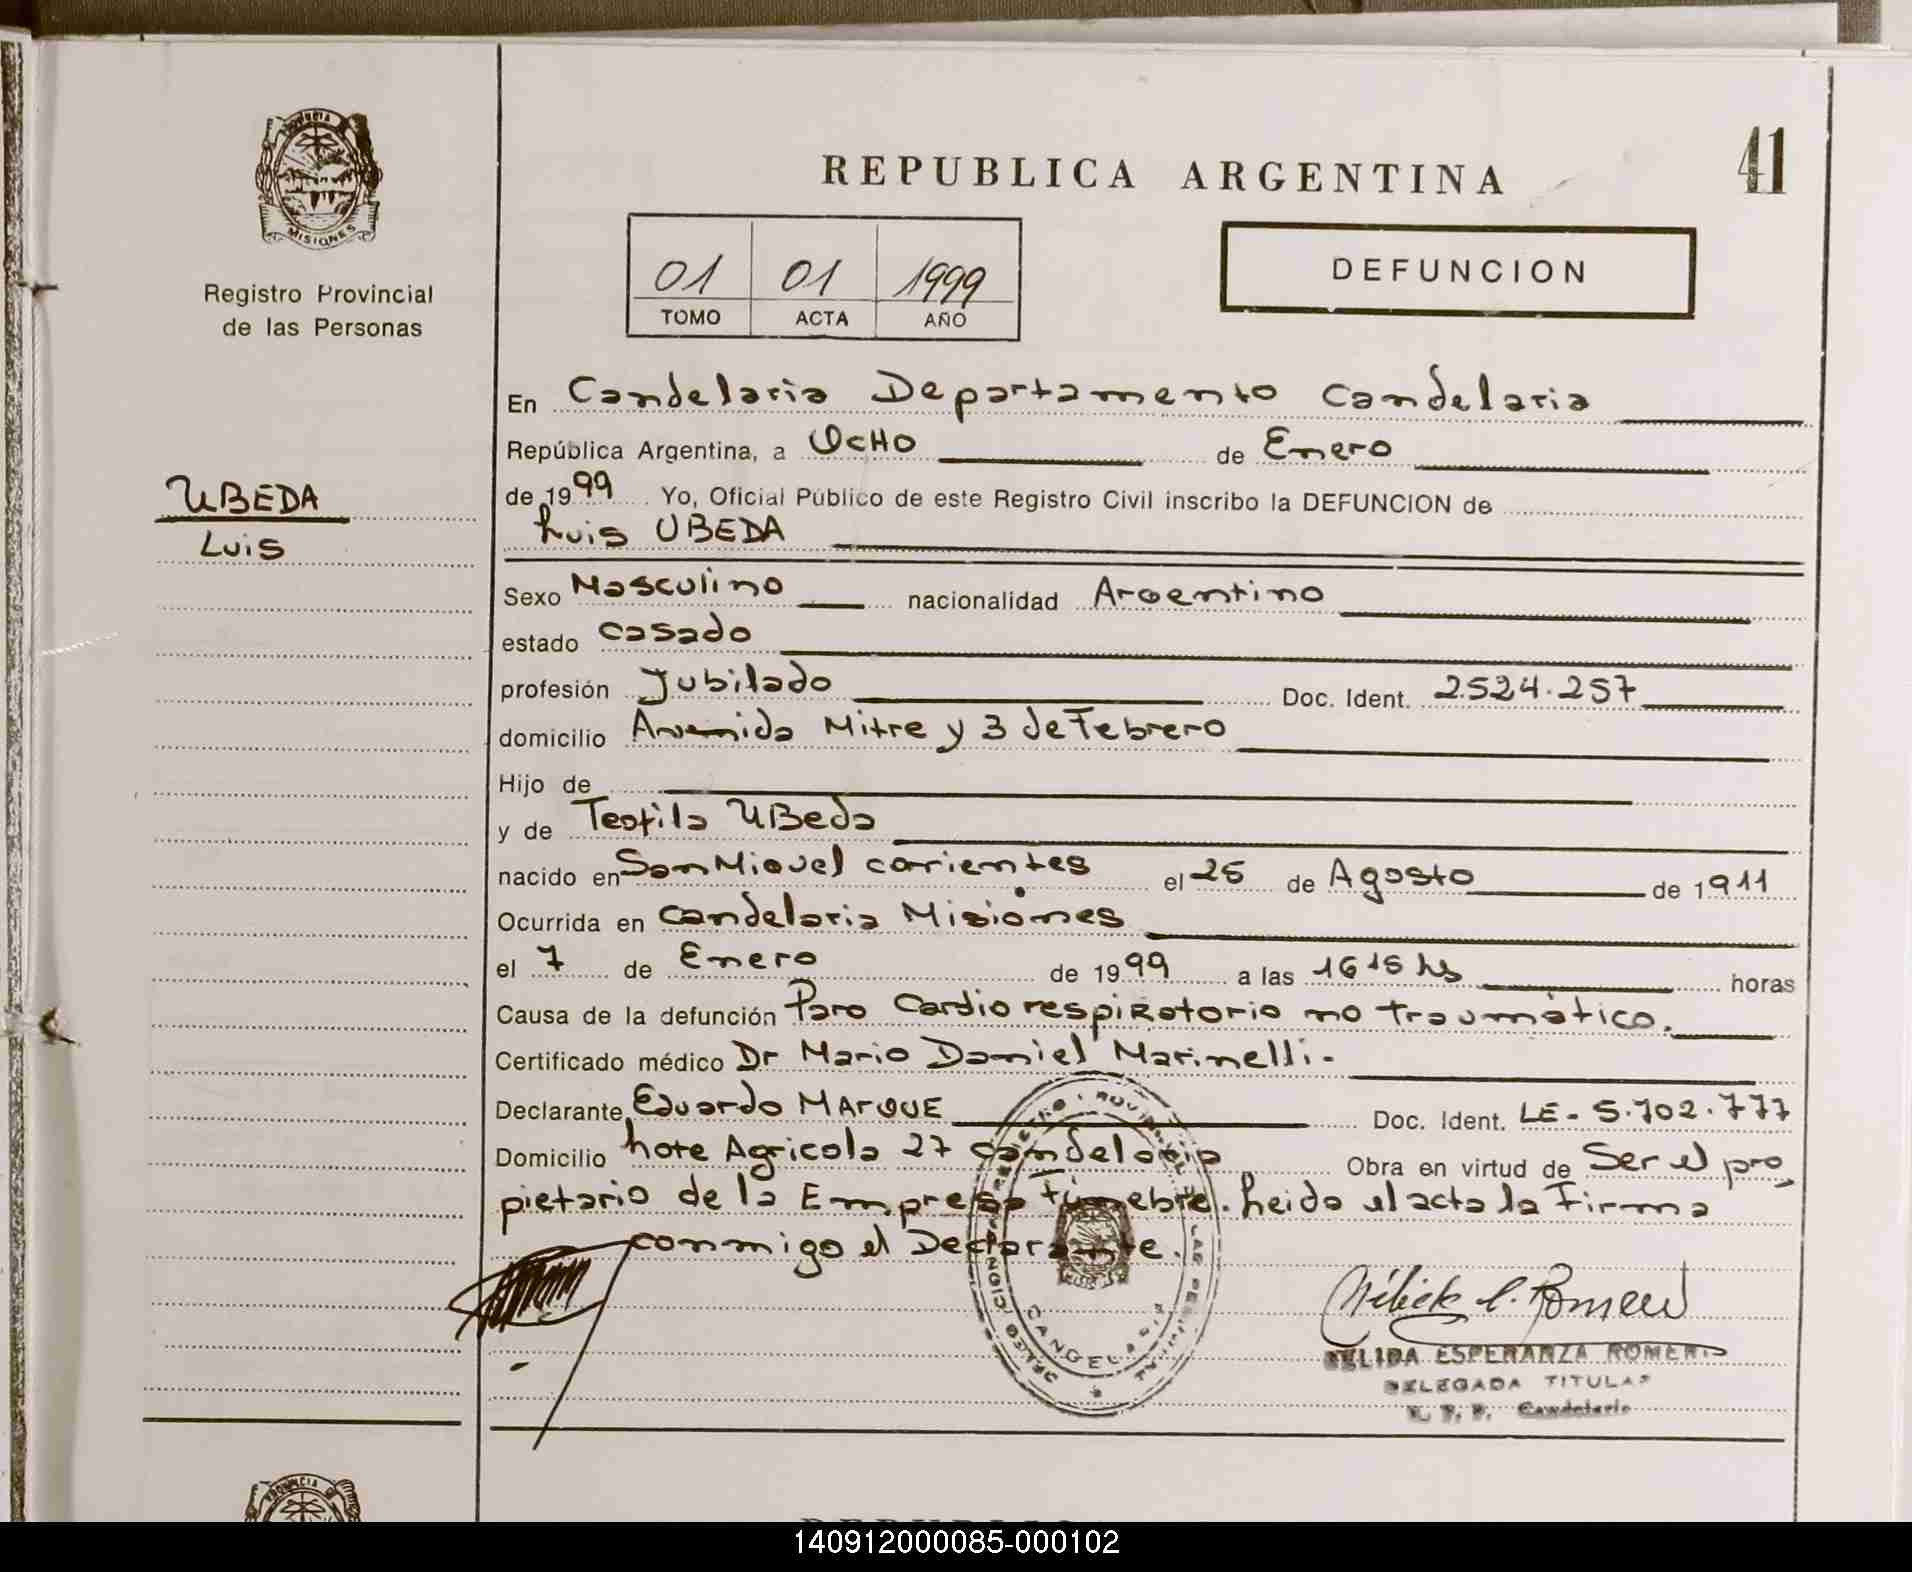 PROVINCIA
MISIONES
Registro Provincial
de las Personas
UBEDA
Luis
REPUBLICA ARGENTINA
41
01 01 1999
TOMO ACTA AÑO
DEFUNCION
En Candelaria Departamento Candelaria
República Argentina, a OcHO de Enero
de 1999 Yo, Oficial Público de este Registro Civil inscribo la DEFUNCION de
Luis UBEDA
Sexo Masculino nacionalidad Argentino
estado casado
profesión Jubilado Doc. Ident. 2.524.257
domicilio Avenida Mitre y 3 de Febrero
Hijo de
y de Teofila UBeda
nacido en San Miguel corrientes el 25 de Agosto de 1911
Ocurrida en candelaria Misiones
el 7 de Enero de 1999 a las 1615 hs horas
Causa de la defunción Paro Cardiorespiratorio no traumático.
Certificado médico Dr Mario Daniel Marinelli.
Declarante Eduardo MArQUE Doc. Ident. LE- 5.702.777
Domicilio Lote Agricola 27 Candelaria Obra en virtud de Ser el pro
pietario de la Empresa Fúnebre. Leida el acta la Firma
conmigo el Declarante.
CANDELARIA
NELIDA ESPERANZA ROMERO
DELEGADA TITULAR
R. P. P. Candelaria
PROVINCIA
140912000085-000102